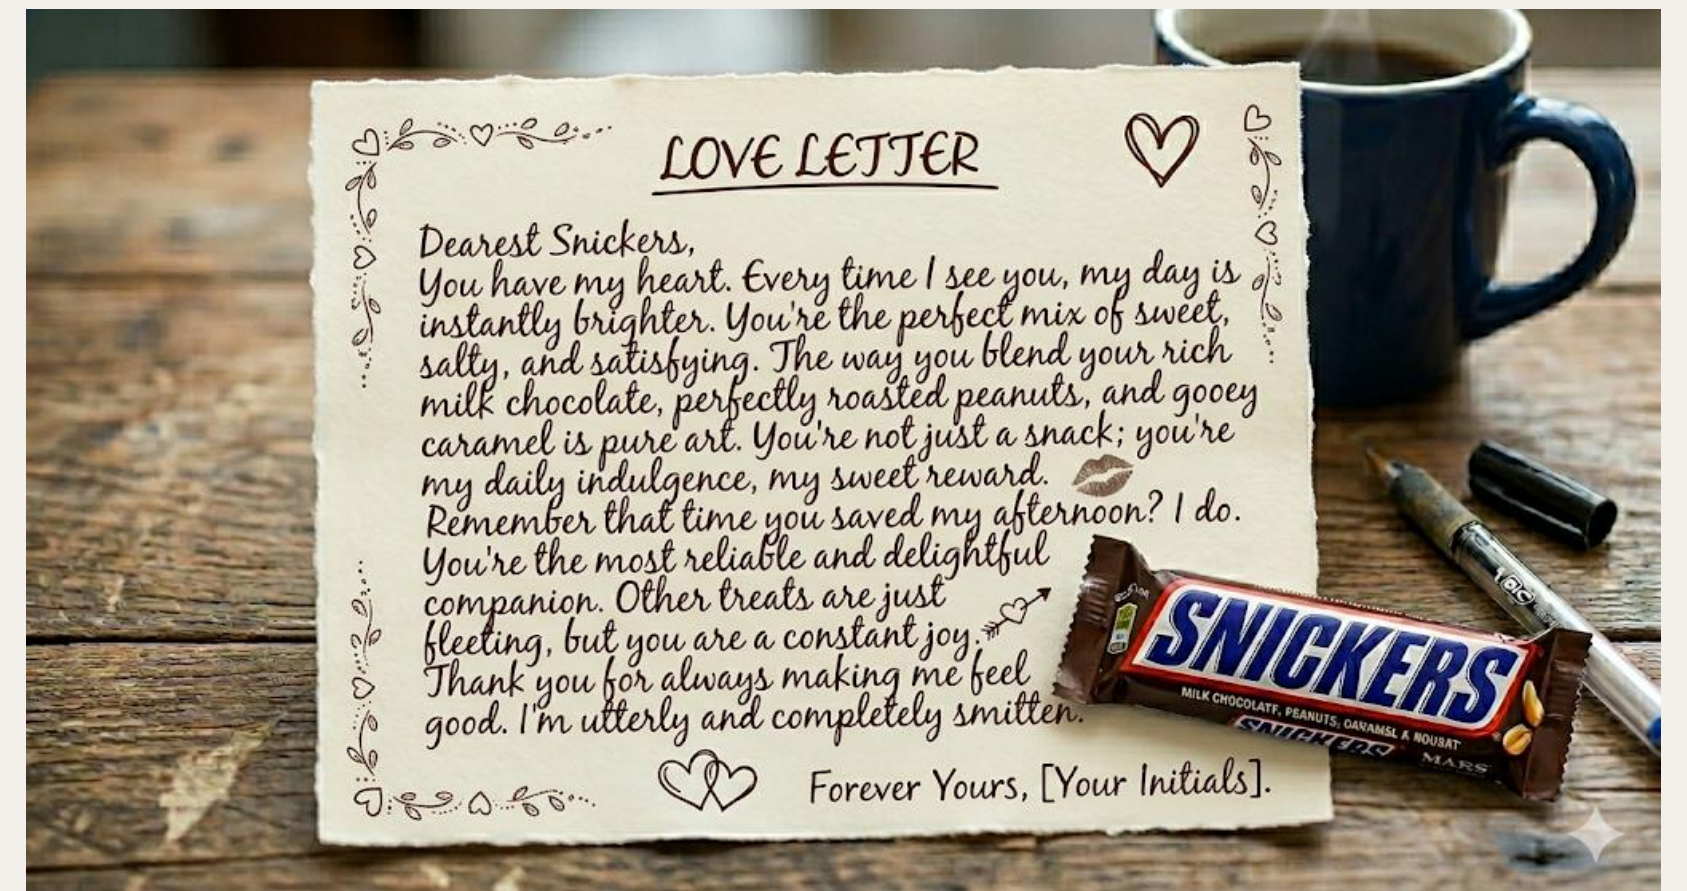 LOVE LETTER
Dearest Snickers,
You have my heart. Every time I see you, my day is
instantly brighter. You're the perfect mix of sweet,
salty, and satisfying. The way you blend your rich
milk chocolate, perfectly roasted peanuts, and gooey
caramel is pure art. You're not just a snack; you're
my daily indulgence, my sweet reward.
Remember that time you saved my afternoon? I do.
You're the most reliable and delightful
companion. Other treats are just
fleeting, but you are a constant joy.
Thank you for always making me feel
good. I'm utterly and completely smitten.
Forever Yours, [Your Initials].
SNICKERS
MILK CHOCOLATE, PEANUTS, CARAMSL & NOUBAT
SNICKERS
MARS
BIC